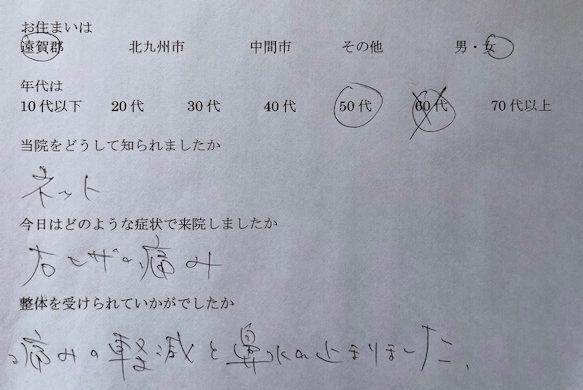 お住まいは
遠賀郡 北九州市 中間市 その他 男・女
年代は
10代以下 20代 30代 40代 50代 60代 70代以上
当院をどうして知られましたか
ネット
今日はどのような症状で来院しましたか
右ヒザの痛み
整体を受けられていかがでしたか
痛みの軽減と鼻水が止まりました。